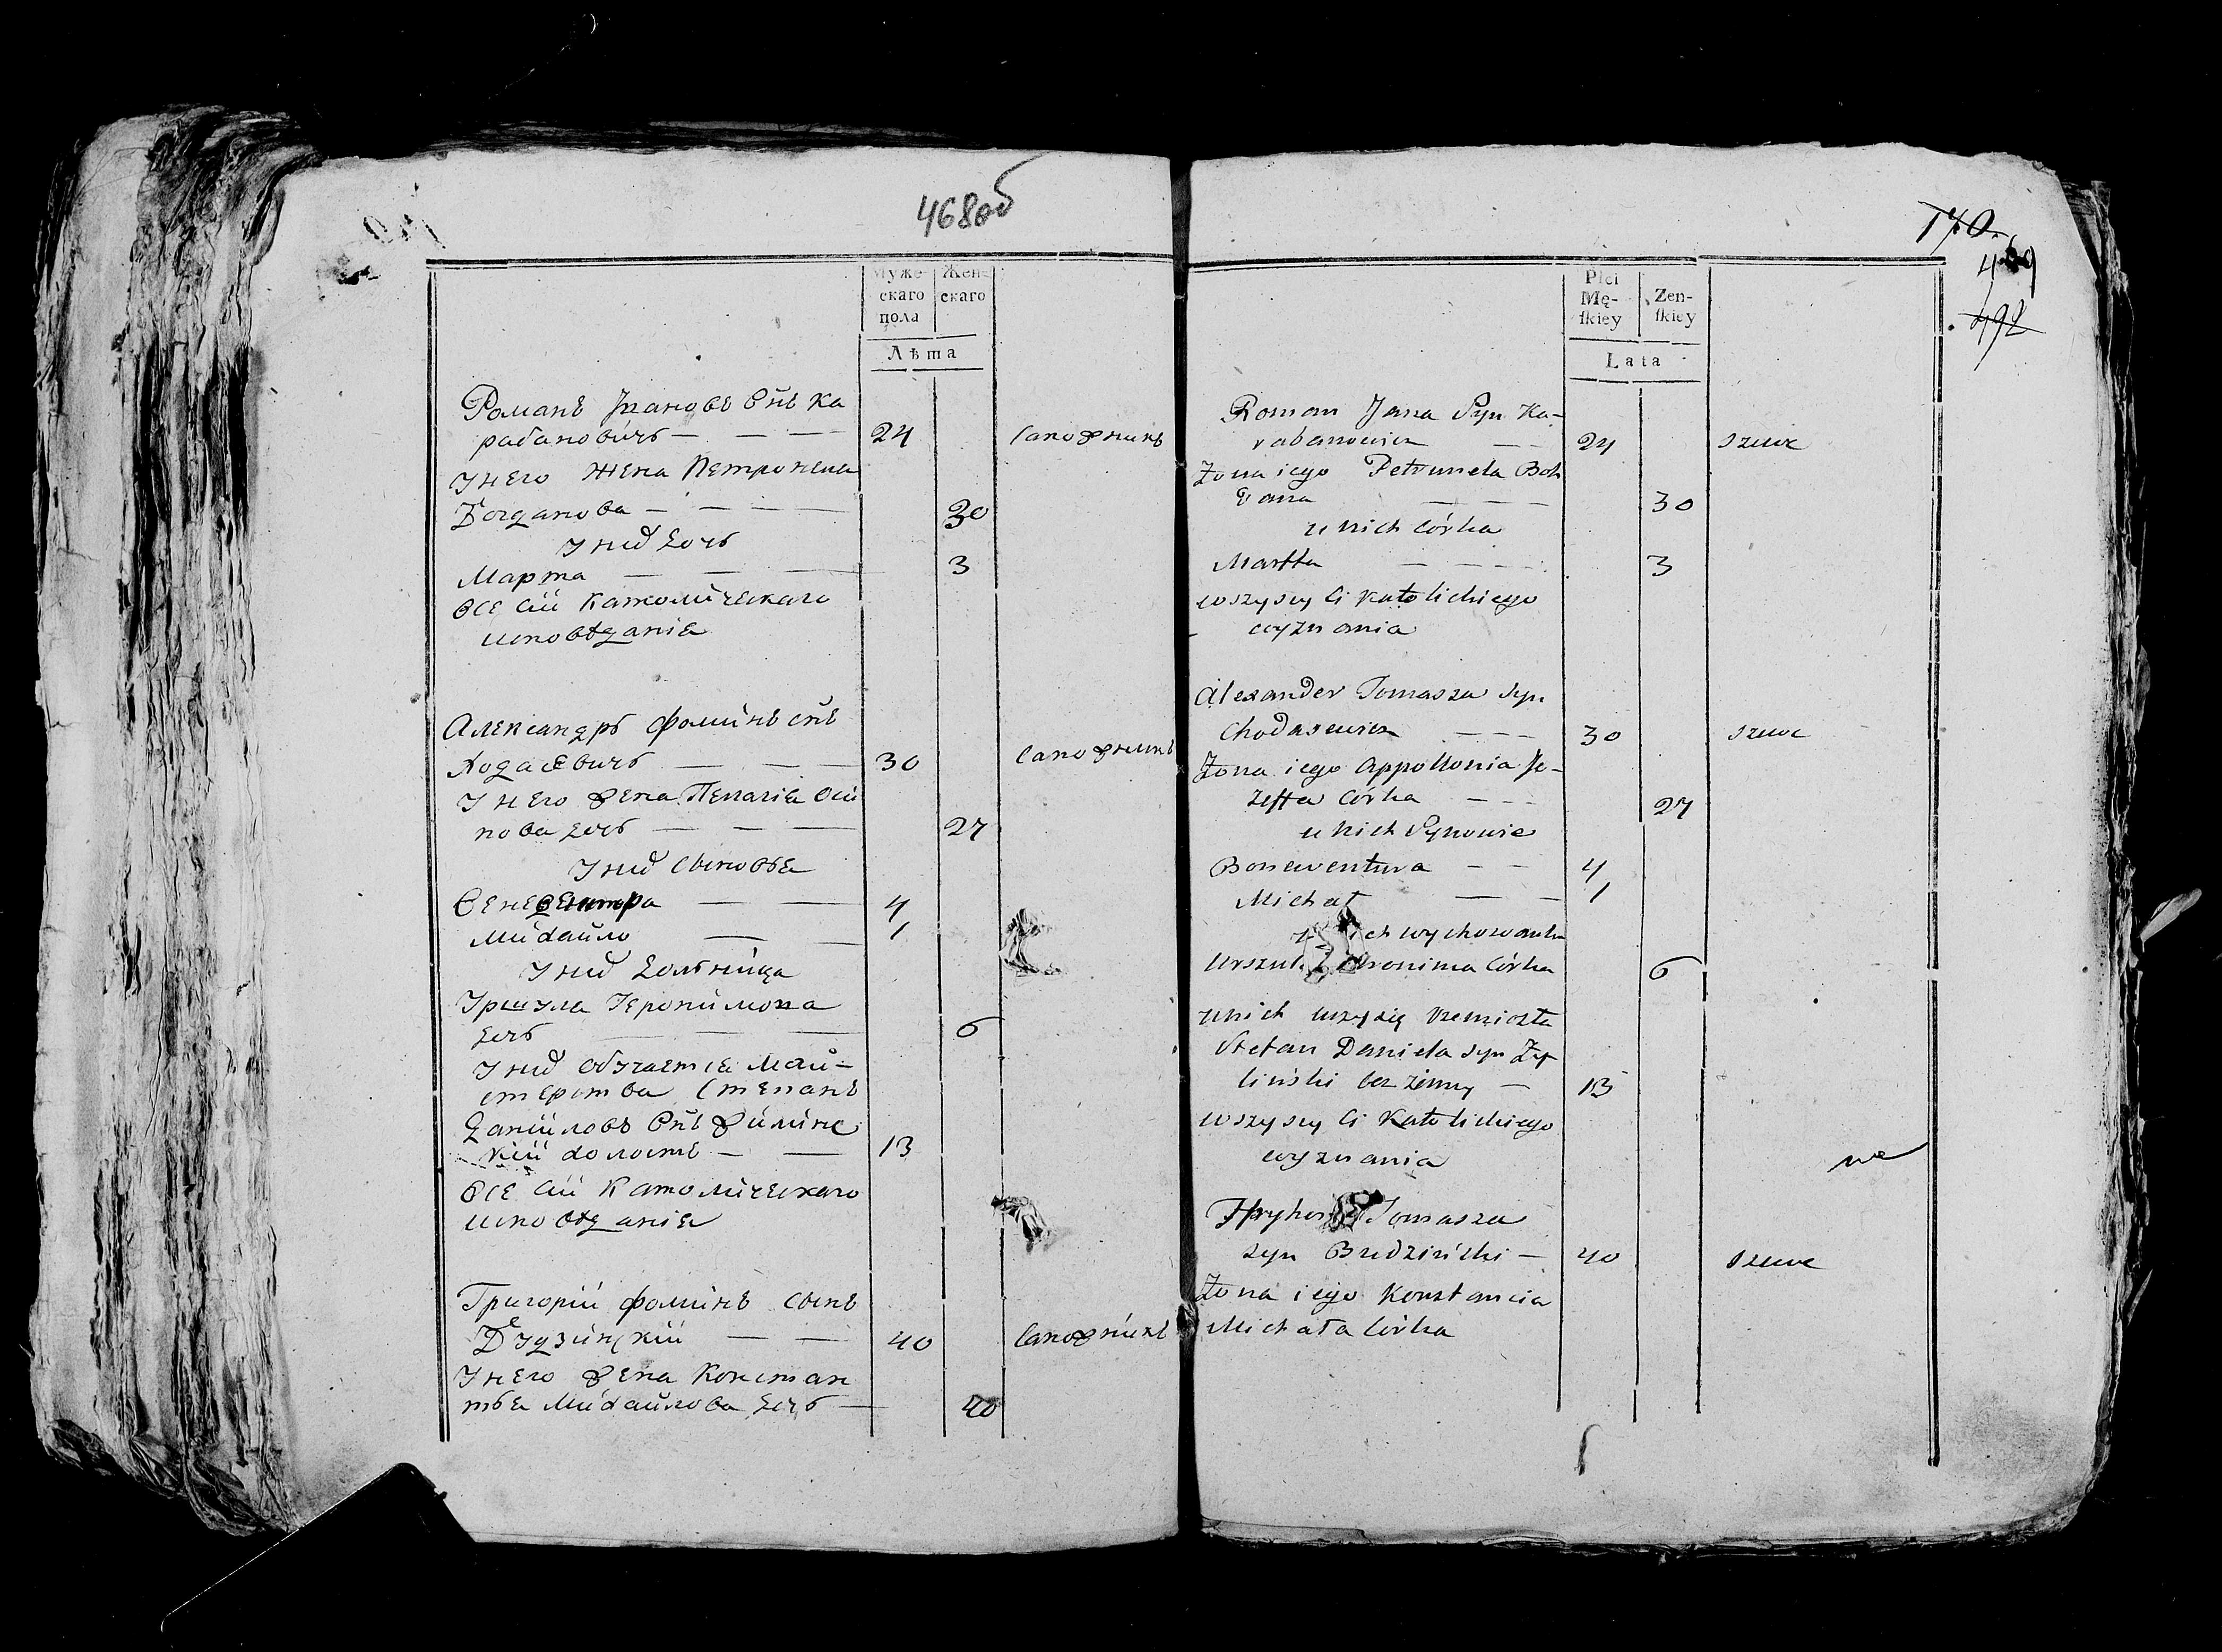 468об
Муже- Жен-
скаго скаго
пола
Лѣта
Романъ Івановъ Снъ Ка
рабановичъ — — — 24 сапожникъ
У него жена Петронела
Богданова — — — 30
У них дочь
Марта — — — 3
Все сии Католическаго
исповѣданія
Александръ Фоминъ снъ
Ходасевичъ — — — 30 сапожникъ
У него жена Пелагія Оси
пова дочь — — — 27
У них Сыновья
4
Михайло — — 1
У них
Уршула Иеронимова
дочь — — 6
У них обучается май-
стерства Степанъ
Даниловъ Снъ Жилинс
кій холостъ — — 13
Все сии Католическаго
исповѣданія
Григорій Фоминъ сынъ
Будзинскій — — 40 Сапожникъ
У него жена Констан
тья Михайлова дочь — 40
170.
469
492
Plci
Mę- Zen-
ſkiey ſkiey
Lata
Roman Jana Syn Ka-
rabanowicz — 24 szewc
Żona iego Petronela Boh
dana — — — 30
u nich córka
Martta — — — 3
wszyscy ci katolickiego
wyznania
Alexander Tomasza syn
Chodasewicz — — — 30 szewc
Żona iego Appollonia Jo-
zeffa córka — — 27
u nich Synowie
Bonawentura — — 4
Michał — — 1
wychowanka
córka 6
u nich uczy się rzemiosła
Stefan Daniela syn Ży-
liński bez żenny — 13
wszyscy ci Katolickiego
wyznania
Tomasza
syn Budziński — 40 szewc
Żona iego Konstancia
Michała córka